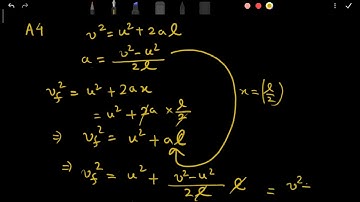 A4
v² = u² + 2al
a = (v² - u²) / 2l
v_f² = u² + 2ax
x = (l/2)
= u² + 2a × l/2
⇒ v_f² = u² + al
⇒ v_f² = u² + (v² - u²) / 2l l = v² -